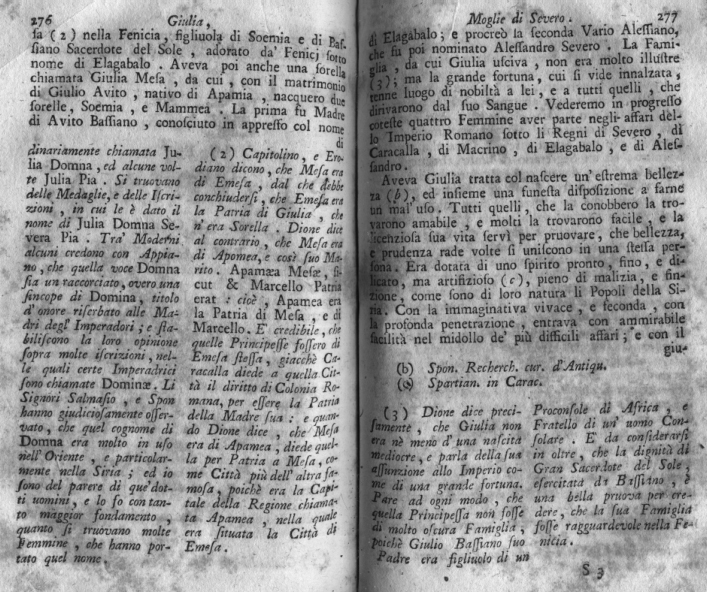 276 Giulia,
ſa (2) nella Fenicia, figliuola di Soemia e di Baſ-
ſiano Sacerdote del Sole, adorato da' Fenicj ſotto
nome di Elagabalo. Aveva poi anche una ſorella
chiamata Giulia Meſa, da cui, con il matrimonio
di Giulio Avito, nativo di Apamia, nacquero due
ſorelle, Soemia, e Mammea. La prima fu Madre
di Avito Baſſiano, conoſciuto in appreſſo col nome
di
dinariamente chiamata Ju-
lia Domna, ed alcune vol-
te Julia Pia. Si truovano
delle Medaglie, e delle Iſcri-
zioni, in cui le è dato il
nome di Julia Domna Se-
vera Pia. Tra' Moderni
alcuni credono con Appia-
no, che quella voce Domna
ſia un raccorciato, overo una
ſincope di Domina, titolo
d'onore riſerbato alle Ma-
dri degl' Imperadori; e ſta-
biliſcono la loro opinione
ſopra molte iſcrizioni, nel-
le quali certe Imperadrici
ſono chiamate Dominæ. Li
Signori Salmaſio, e Spon
hanno giudicioſamente oſſer-
vato, che quel cognome di
Domna era molto in uſo
nell' Oriente, e particolar-
mente nella Siria; ed io
ſono del parere di que' dot-
ti uomini, e lo ſo con tan-
to maggior fondamento,
quanto ſi truovano molte
Femmine, che hanno por-
tato quel nome.
(2) Capitolino, e Ero-
diano dicono, che Meſa era
di Emeſa, dal che debbe
conchiuderſi, che Emeſa era
la Patria di Giulia, che
n'era Sorella. Dione dice
al contrario, che Meſa era
di Apomea, e così ſuo Ma-
rito. Apamæa Meſæ, ſi-
cut & Marcello Patria
erat: cioè, Apamea era
la Patria di Meſa, e di
Marcello. E' credibile, che
quelle Principeſſe foſſero di
Emeſa ſteſſa, giacchè Ca-
racalla diede a quella Cit-
tà il diritto di Colonia Ro-
mana, per eſſere la Patria
della Madre ſua: e quan-
do Dione dice, che Meſa
era di Apamea, diede quel-
la per Patria a Meſa, co-
me Città più dell' altra fa-
moſa, poichè era la Capi-
tale della Regione chiama-
ta Apamea, nella quale
era ſituata la Città di
Emeſa.
Moglie di Severo. 277
di Elagabalo; e procreò la ſeconda Vario Aleſſiano,
che fu poi nominato Aleſſandro Severo. La Fami-
glia, da cui Giulia uſciva, non era molto illuſtre
(3); ma la grande fortuna, cui ſi vide innalzata,
tenne luogo di nobiltà a lei, e a tutti quelli, che
dirivarono dal ſuo Sangue. Vederemo in progreſſo
coteſte quattro Femmine aver parte negli affari del-
lo Imperio Romano ſotto li Regni di Severo, di
Caracalla, di Macrino, di Elagabalo, e di Aleſ-
ſandro.
Aveva Giulia tratta col naſcere un' eſtrema bellez-
za (b), ed inſieme una funeſta diſpoſizione a farne
un mal' uſo. Tutti quelli, che la conobbero la tro-
varono amabile, e molti la trovarono facile, e la
licenzioſa ſua vita ſervì per pruovare, che bellezza,
e prudenza rade volte ſi uniſcono in una ſteſſa per-
ſona. Era dotata di uno ſpirito pronto, fino, e di-
licato, ma artifizioſo (c), pieno di malizia, e fin-
zione, come ſono di loro natura li Popoli della Si-
ria. Con la immaginativa vivace, e feconda, con
la profonda penetrazione, entrava con ammirabile
facilità nel midollo de' più difficili affari; e con il
giu-
(b) Spon. Recherch. cur. d'Antiqu.
(c) Spartian. in Carac.
(3) Dione dice preci-
ſamente, che Giulia non
era nè meno d'una naſcita
mediocre, e parla della ſua
aſſunzione allo Imperio co-
me di una grande fortuna.
Pare ad ogni modo, che
quella Principeſſa non foſſe
di molto oſcura Famiglia,
poichè Giulio Baſſiano ſuo
Padre era figliuolo di un
Proconſole di Africa, e
Fratello di un' uomo Con-
ſolare. E' da conſiderarſi
in oltre, che la dignità di
Gran Sacerdote del Sole,
eſercitata da Baſſiano, è
una bella pruova per cre-
dere, che la ſua Famiglia
foſſe ragguardevole nella Fe-
nicia.
S 3